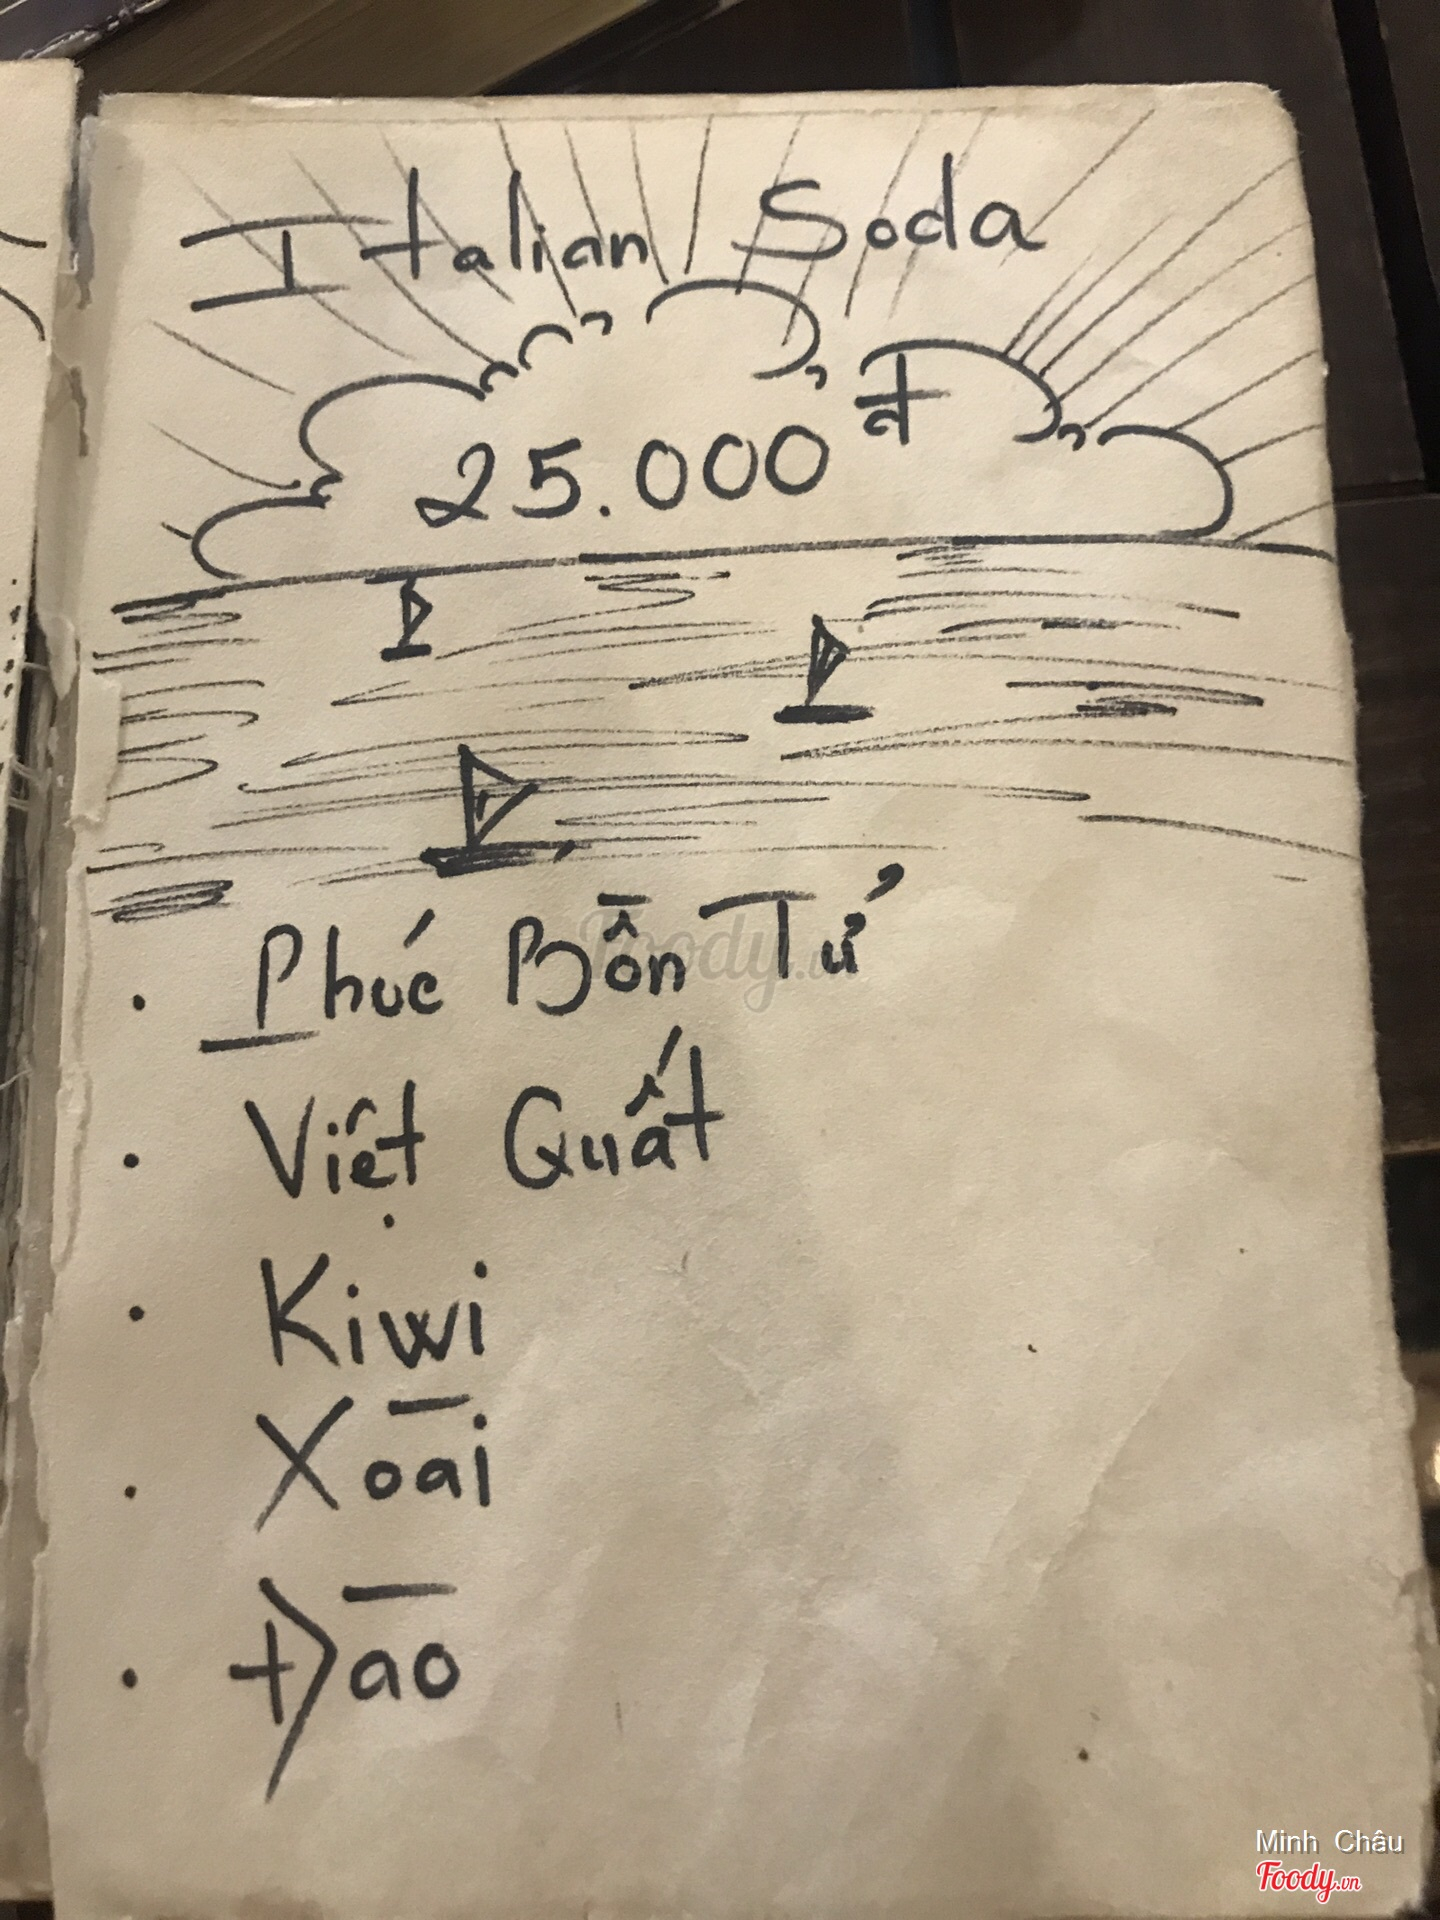 Italian Soda
25.000 đ
. Phúc Bồn Tử
. Việt Quất
. Kiwi
. Xoài
. Đào
Foody.vn
Minh Châu
Foody.vn